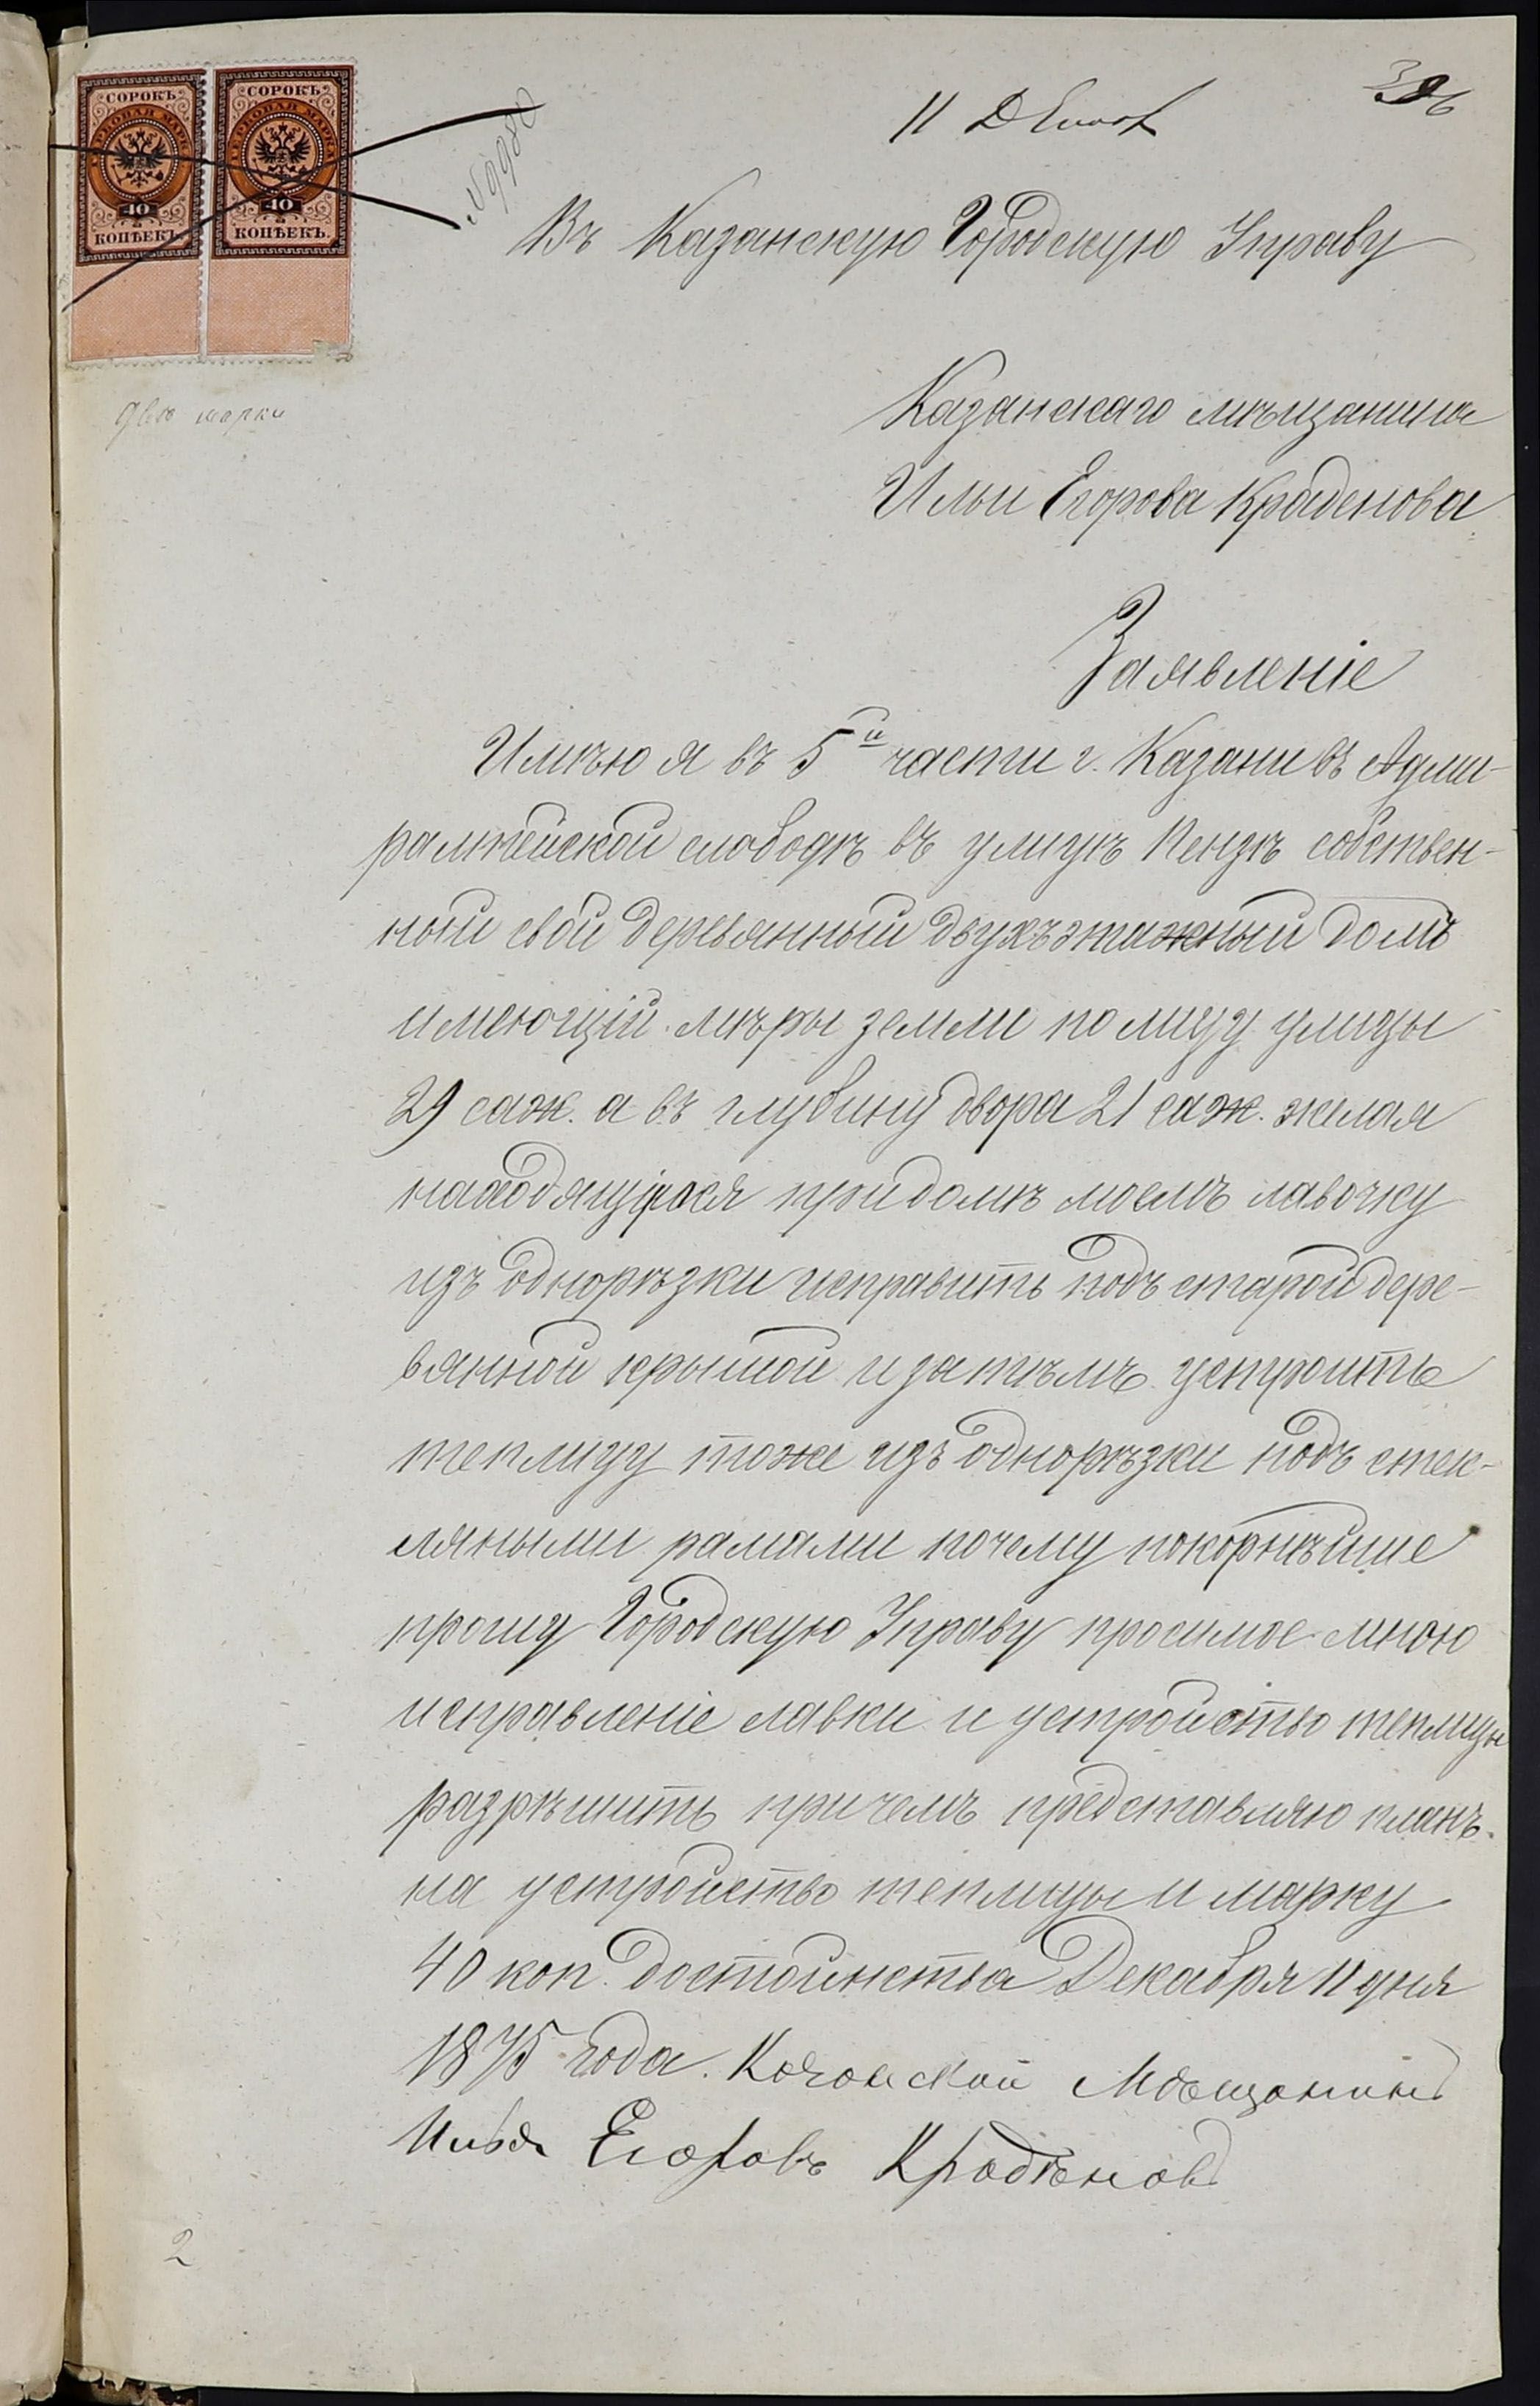 СОРОКЪ
ГЕРБОВАЯ МАРКА
40
КОПѢЕКЪ.
СОРОКЪ
ГЕРБОВАЯ МАРКА
40
КОПѢЕКЪ.
11
двѣ марки
Въ Казанскую Городскую Управу
Казанскаго мѣщанина
Ильи Егорова Краденова
Заявленіе
Имѣю я въ 5й части г. Казани въ Адми-
ралтейской слободѣ въ улицѣ Пензѣ собствен-
ный свой деревянный двухъэтажный домъ
имеющій мѣры земли по лицу улицы
29 саж. а въ глубину двора 21 саж. желая
находящуюся при домѣ моемъ лавочку
изъ однорѣзки исправить подъ старой дере-
вянной крышой и затѣмъ устроить
теплицу тоже изъ однорѣзки подъ стек-
ляными рамами почему покорнѣйше
прошу Городскую Управу просимое мною
исправленіе лавки и устройство теплицы
разрѣшить при чемъ представляю планъ
на устройство теплицы и марку
40 коп. достоинства Декабря 11 дня
1875 года. Казанской Мѣщанинъ
Илья Егоровъ Кradѣновъ
2